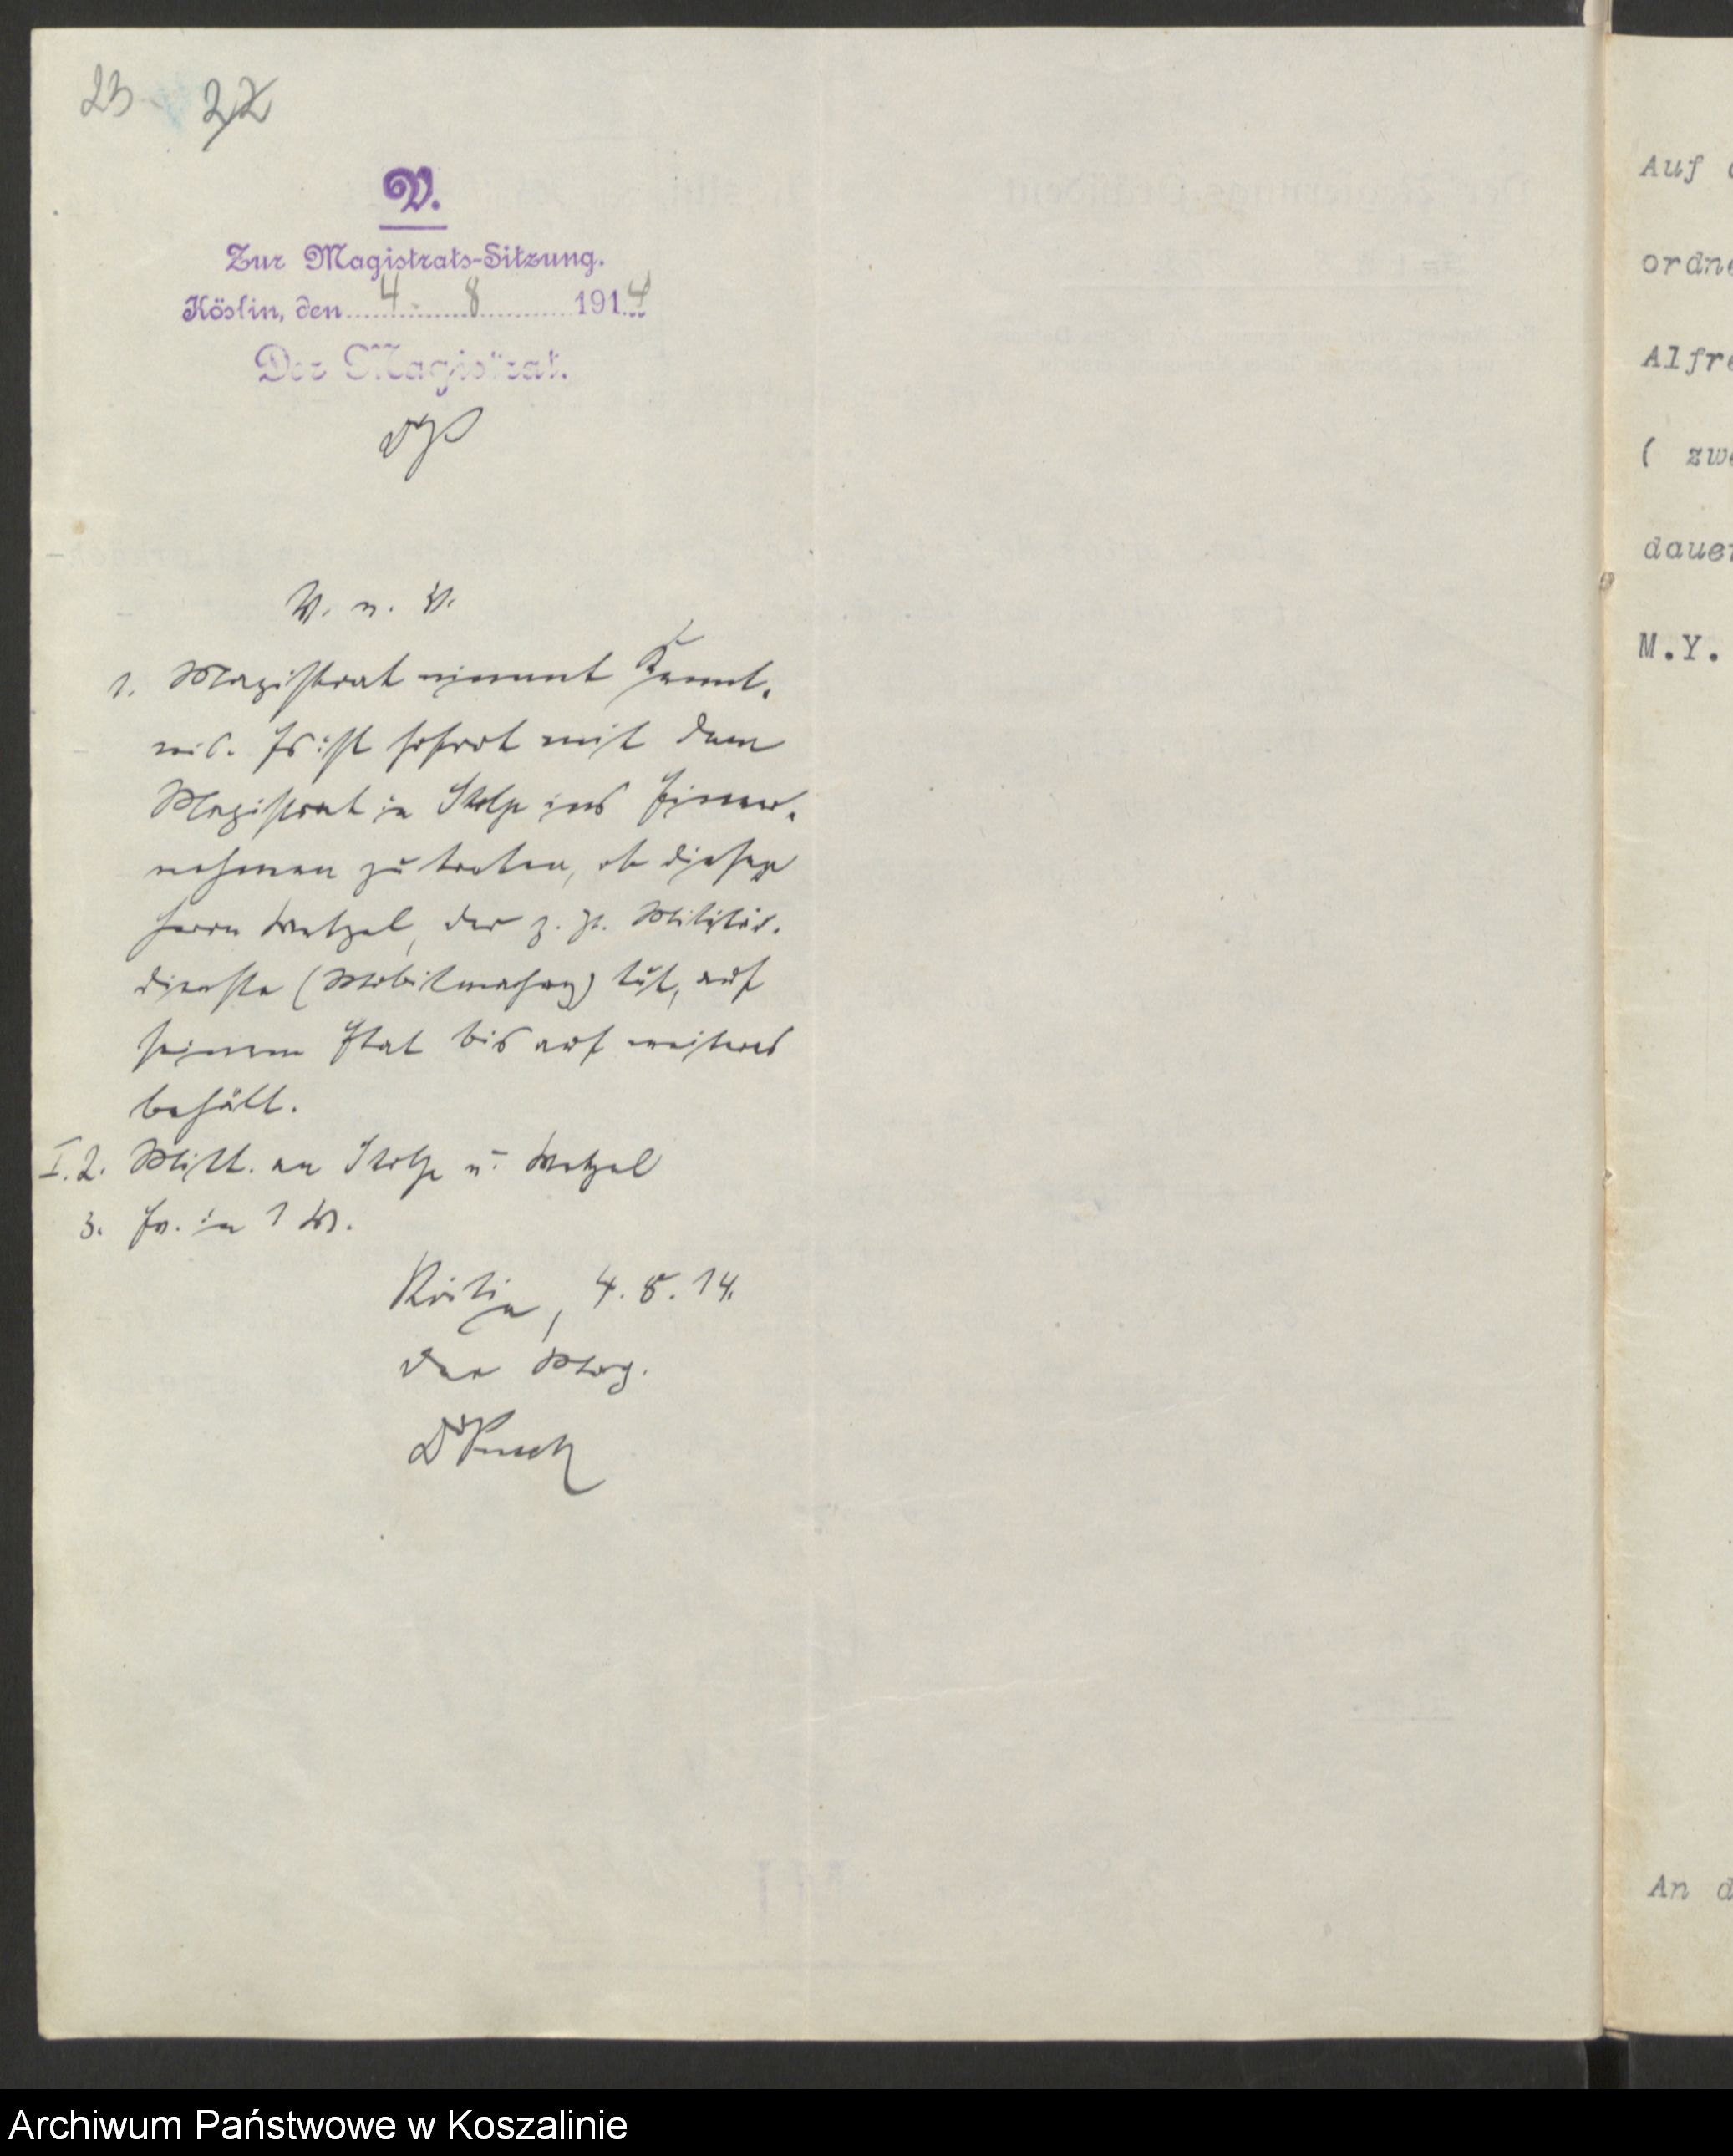 23 22
V.
Zur Magistrats-Sitzung.
Köslin, den 4. 8 1914
Der Magistrat.
V. n. V.
1. Magistrat nimmt Kennt-
nis. Es ist sofort mit dem
Magistrat in Stolp ins Einver-
nehmen zu treten, ob dieser
Herrn Wetzel, der z. Zt. Militär-
dienste (Mobilmachung) tut, auf
seinem Etat bis auf weiteres
behält.
I. 2. Mittl. an Stolp u. Wetzel
3. in 1 W.
Köslin, 4. 8. 14.
Der Mag.
Dr
Auf
ordne
Alfre
( zw
dauer
M.Y.
An d
Archiwum Państwowe w Koszalinie